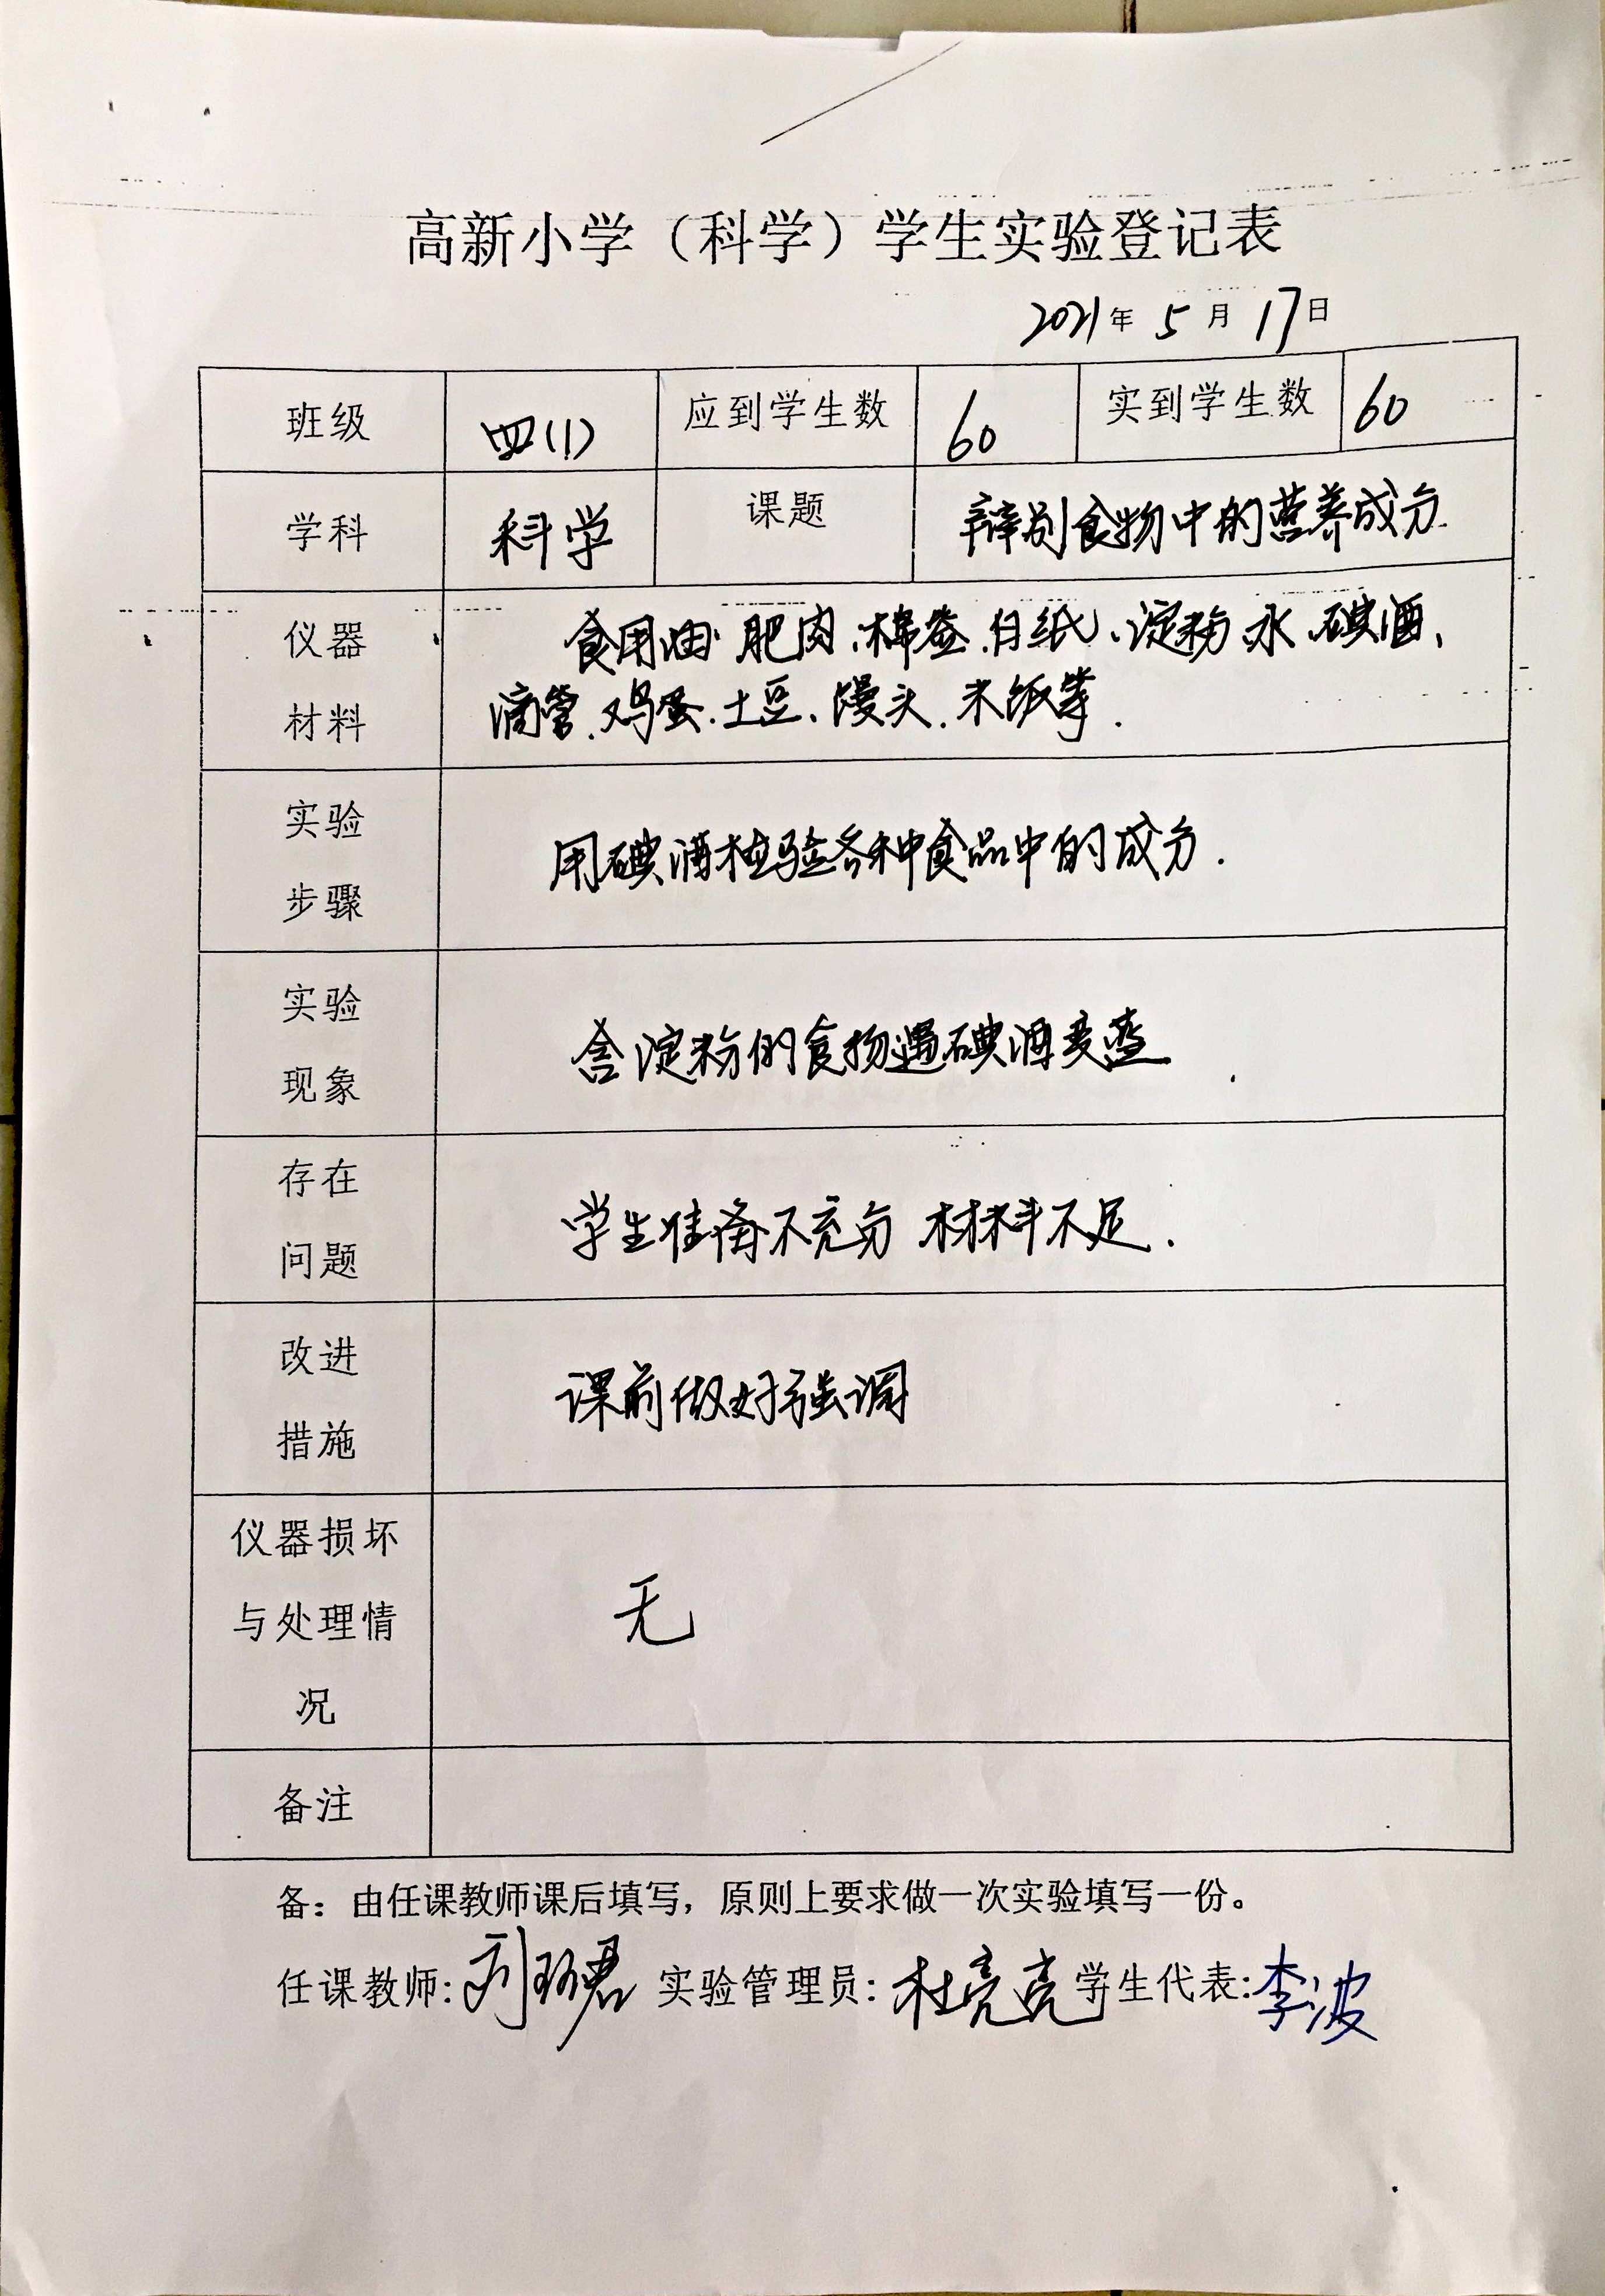 高新小学（科学）学生实验登记表
2021年 5 月 17日
班级 四(1) 应到学生数 60 实到学生数 60
学科 科学 课题 辩别食物中的营养成分
仪器
材料
食用油、肥肉、棉签、白纸、淀粉、水、碘酒、
滴管、鸡蛋、土豆、馒头、米饭等.
实验
步骤
用碘酒检验各种食品中的成分.
实验
现象
含淀粉的食物遇碘酒变蓝
存在
问题
学生准备不充分 材料不足.
改进
措施
课前做好强调
仪器损坏
与处理情
况
无
备注
备：由任课教师课后填写，原则上要求做一次实验填写一份。
任课教师: 刘 君 实验管理员: 杜亮亮 学生代表: 李波